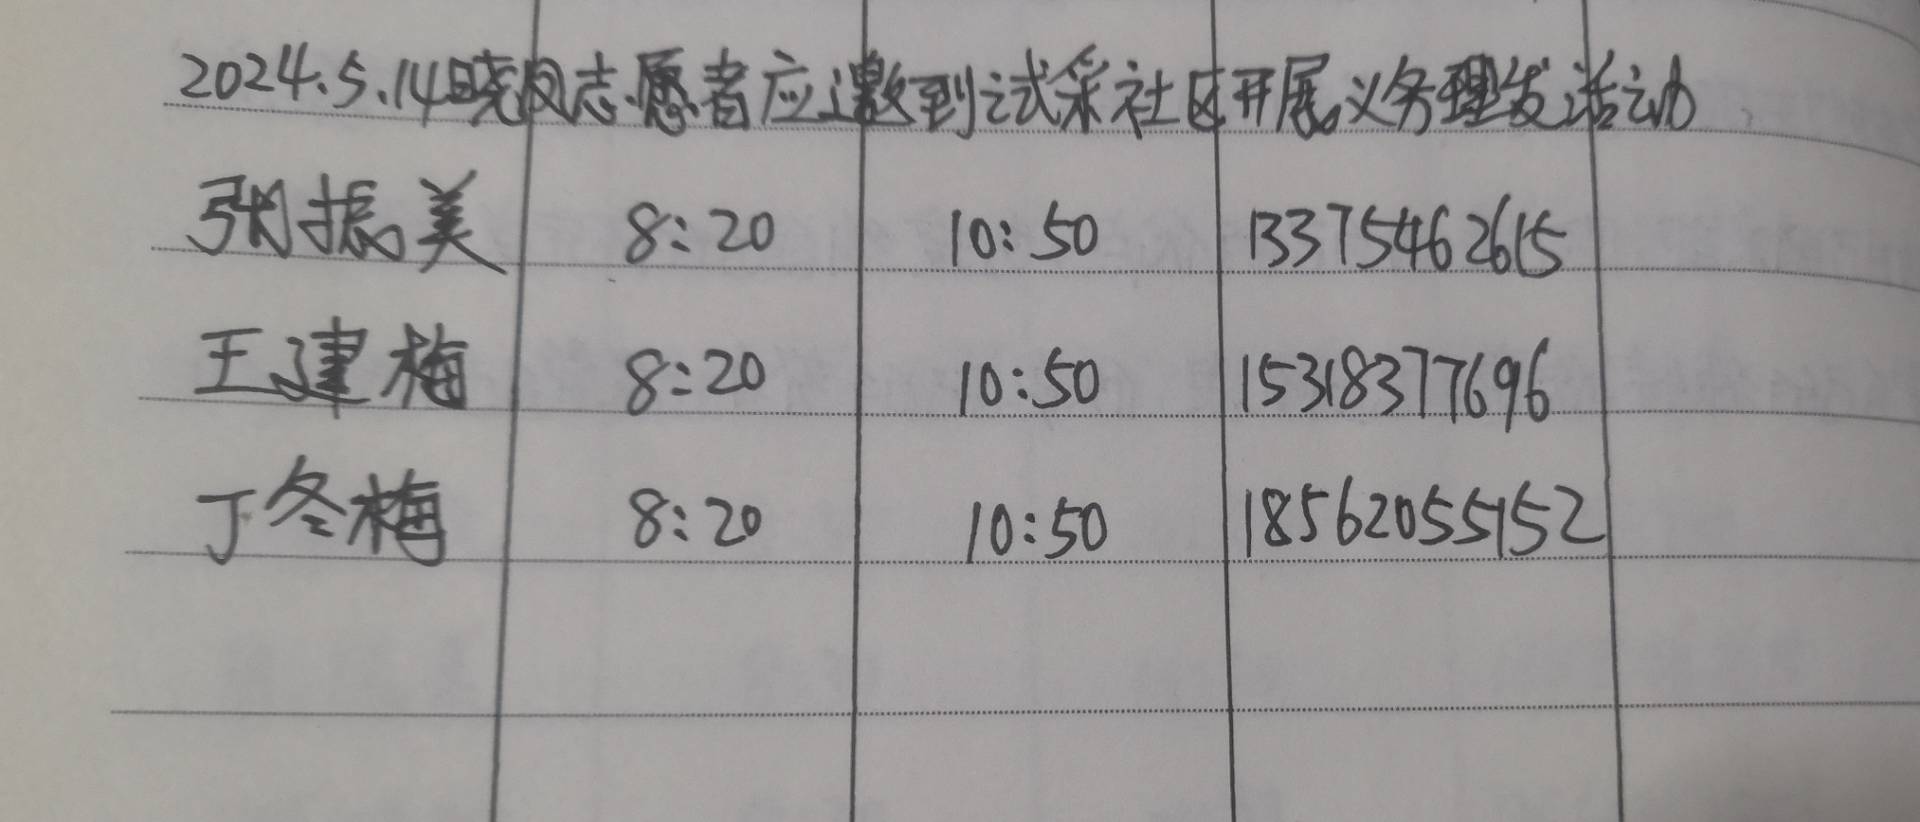 2024.5.14晓风志愿者应邀到试采社区开展义务理发活动
张振美 8:20 10:50 13375462615
王建梅 8:20 10:50 15318377696
丁冬梅 8:20 10:50 18562055152